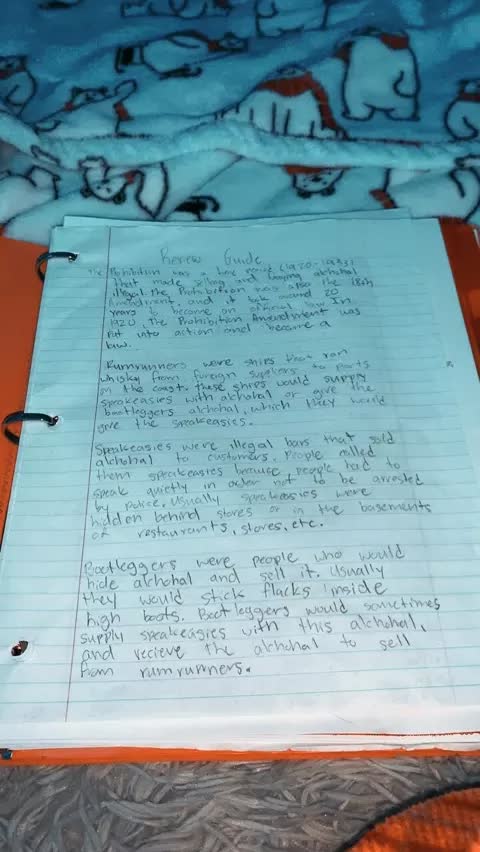 Review Guide
The Prohibition was a time period (1920-1933)
that made selling and buying alchohal
illegal. The Prohibition was also the 18th
Amendment, and it took around 20
years to become an official law. In
1920, The Prohibition Amendment was
put into action and became a
law.
Rumrunners were ships that ran
whisky from foreign suppliers to ports
on the coast. These ships would supply
speakeasies with alchohal or give the
bootleggers alchohal, which they would
give the speakeasies.
Speakeasies were illegal bars that sold
alchohal to customers. People called
them speakeasies because people had to
speak quietly in order not to be arrested
by Police. Usually speakeasies were
hidden behind stores or in the basements
of restaurants, stores, etc.
Bootleggers were people who would
hide alchohal and sell it. Usually
they would stick flacks inside
high boots. Bootleggers would sometimes
supply speakeasies with this alchohal,
and recieve the alchohal to sell
from rumrunners.